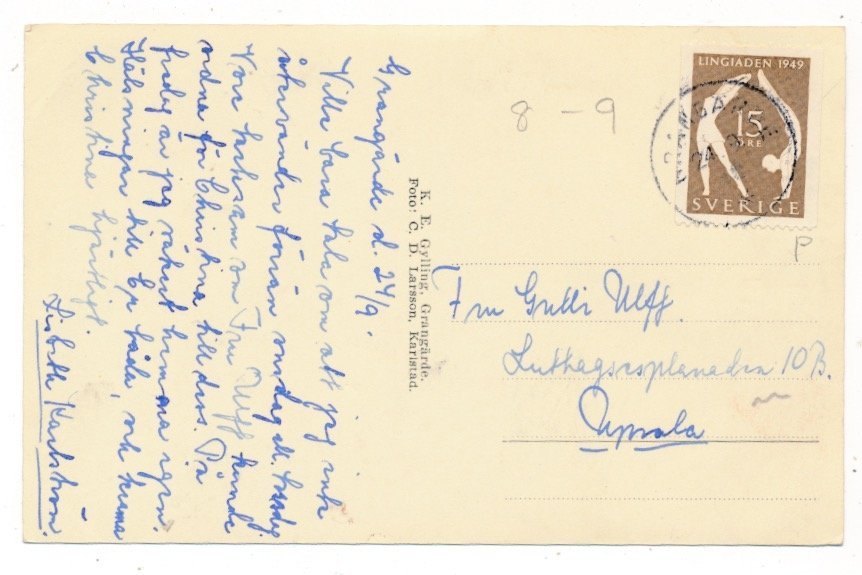 Grangärde d. 24/9.
Ville bara tala om att jag inte
återvänder förrän onsdag ell. torsdag
Vore tacksam om Fru Ulff kunde
ordna för Christina till dess. På
fredag är jag säkert hemma igen.
Hälsningar till Er båda, och krama
Christina hjärtligt
Lisbeth Karlström.
K. E. Gylling, Grangärde.
Foto: C. D. Larsson, Karlstad.
8 – 9
LINGIADEN 1949
15
ÖRE
SVERIGE
24 9
P
Fru Gulli Ulff.
Luthagsesplanaden 10 B.
Uppsala